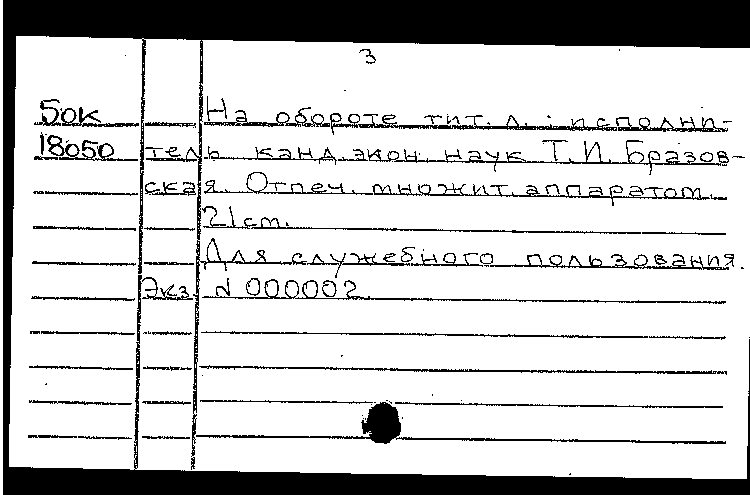 3
БОК На обороте тит. л. : исполни-
18050 тель канд. экон. наук Т.И. Бразов-
ская. Отпеч. множит. аппаратом.
21 см.
Для служебного пользования.
Экз. N 000002.